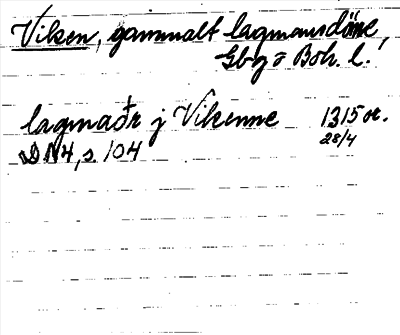 Viken, gammalt lagmansdöme,
Gbg o Boh. l.!
lagmaðr j Vikenne 1315 or.
28/4
DN4, s 104